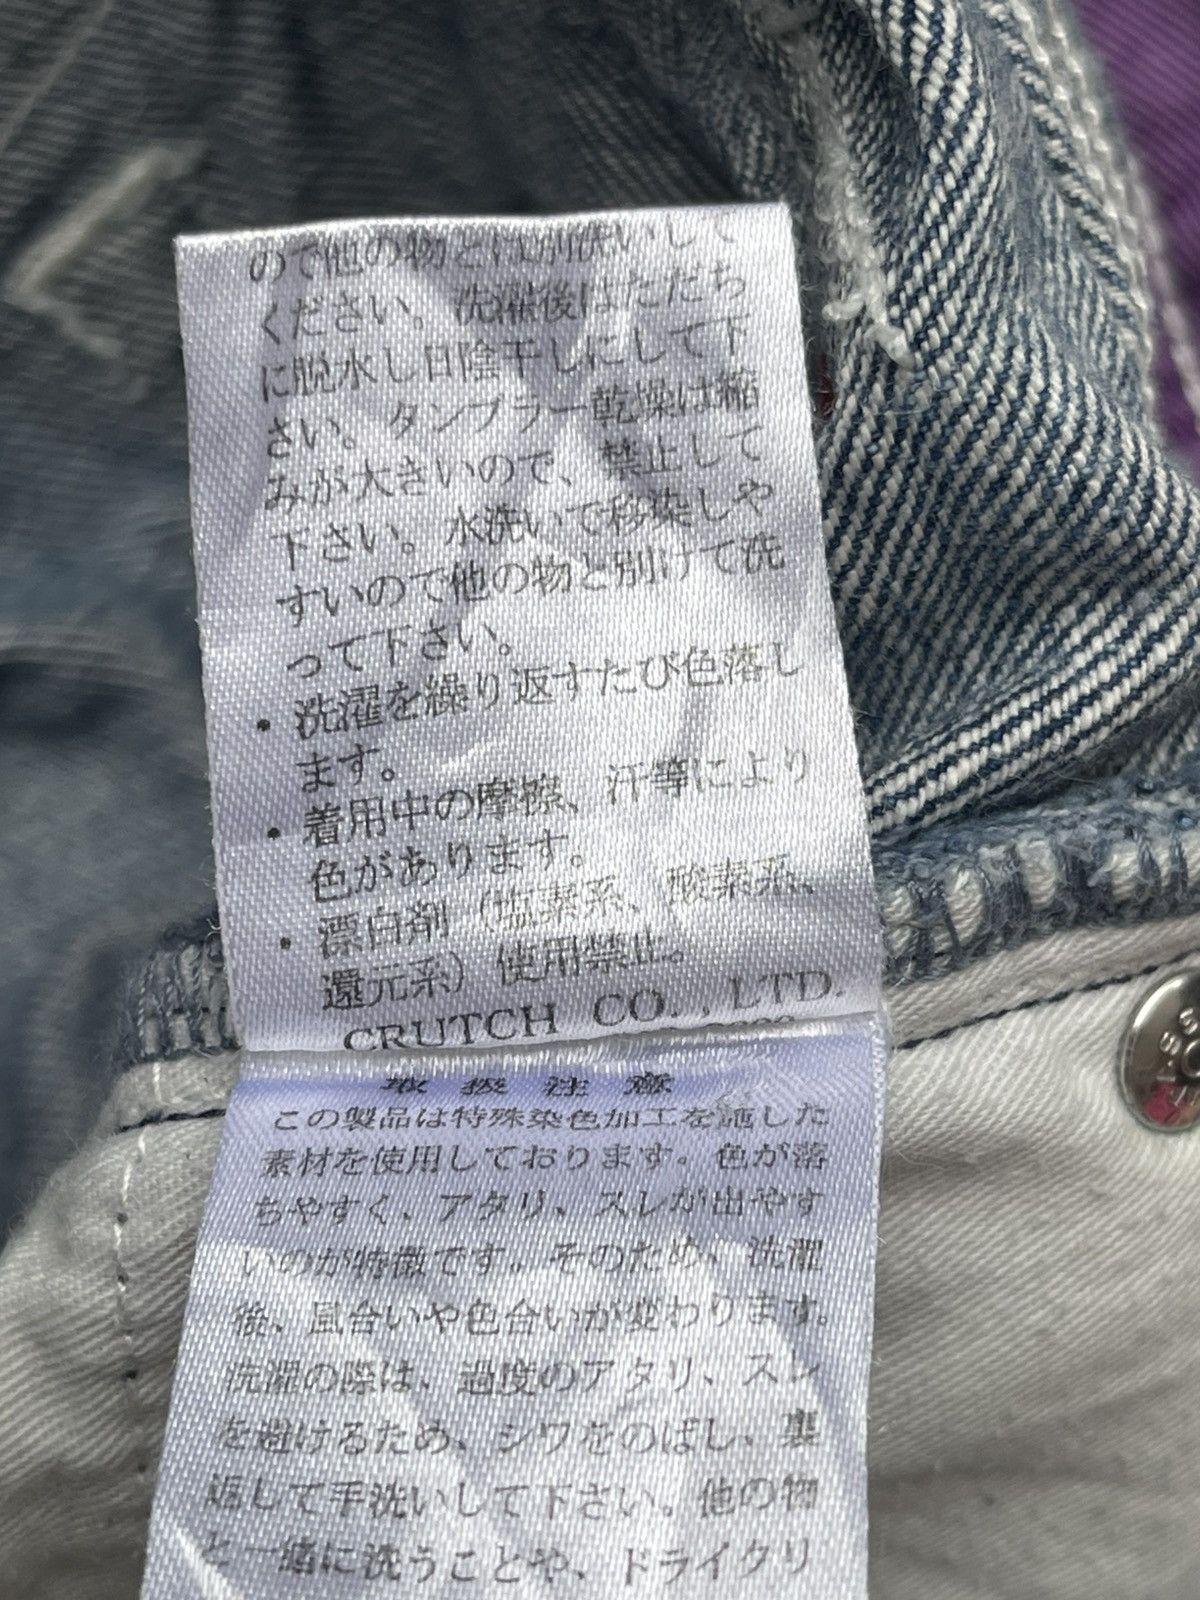 ので他の物とは別洗いして
ください。洗濯後はただち
に脱水し日陰干しにして下
さい。タンブラー乾燥は縮
みが大きいので、禁止して
下さい。水洗いで移染しや
すいので他の物と別けて洗
って下さい。
・洗濯を繰り返すたび色落し
ます。
・着用中の摩擦、汗等により
色があります。
・漂白剤（塩素系、酸素系、
還元系）使用禁止。
CRUTCH CO.,LTD.
取扱注意
この製品は特殊染色加工を施した
素材を使用しております。色が落
ちやすく、アタリ、スレが出やす
いのが特徴です。そのため、洗濯
後、風合いや色合いが変わります。
洗濯の際は、過度のアタリ、スレ
を避けるため、シワをのばし、裏
返して手洗いして下さい。他の物
と一緒に洗うことや、ドライクリ